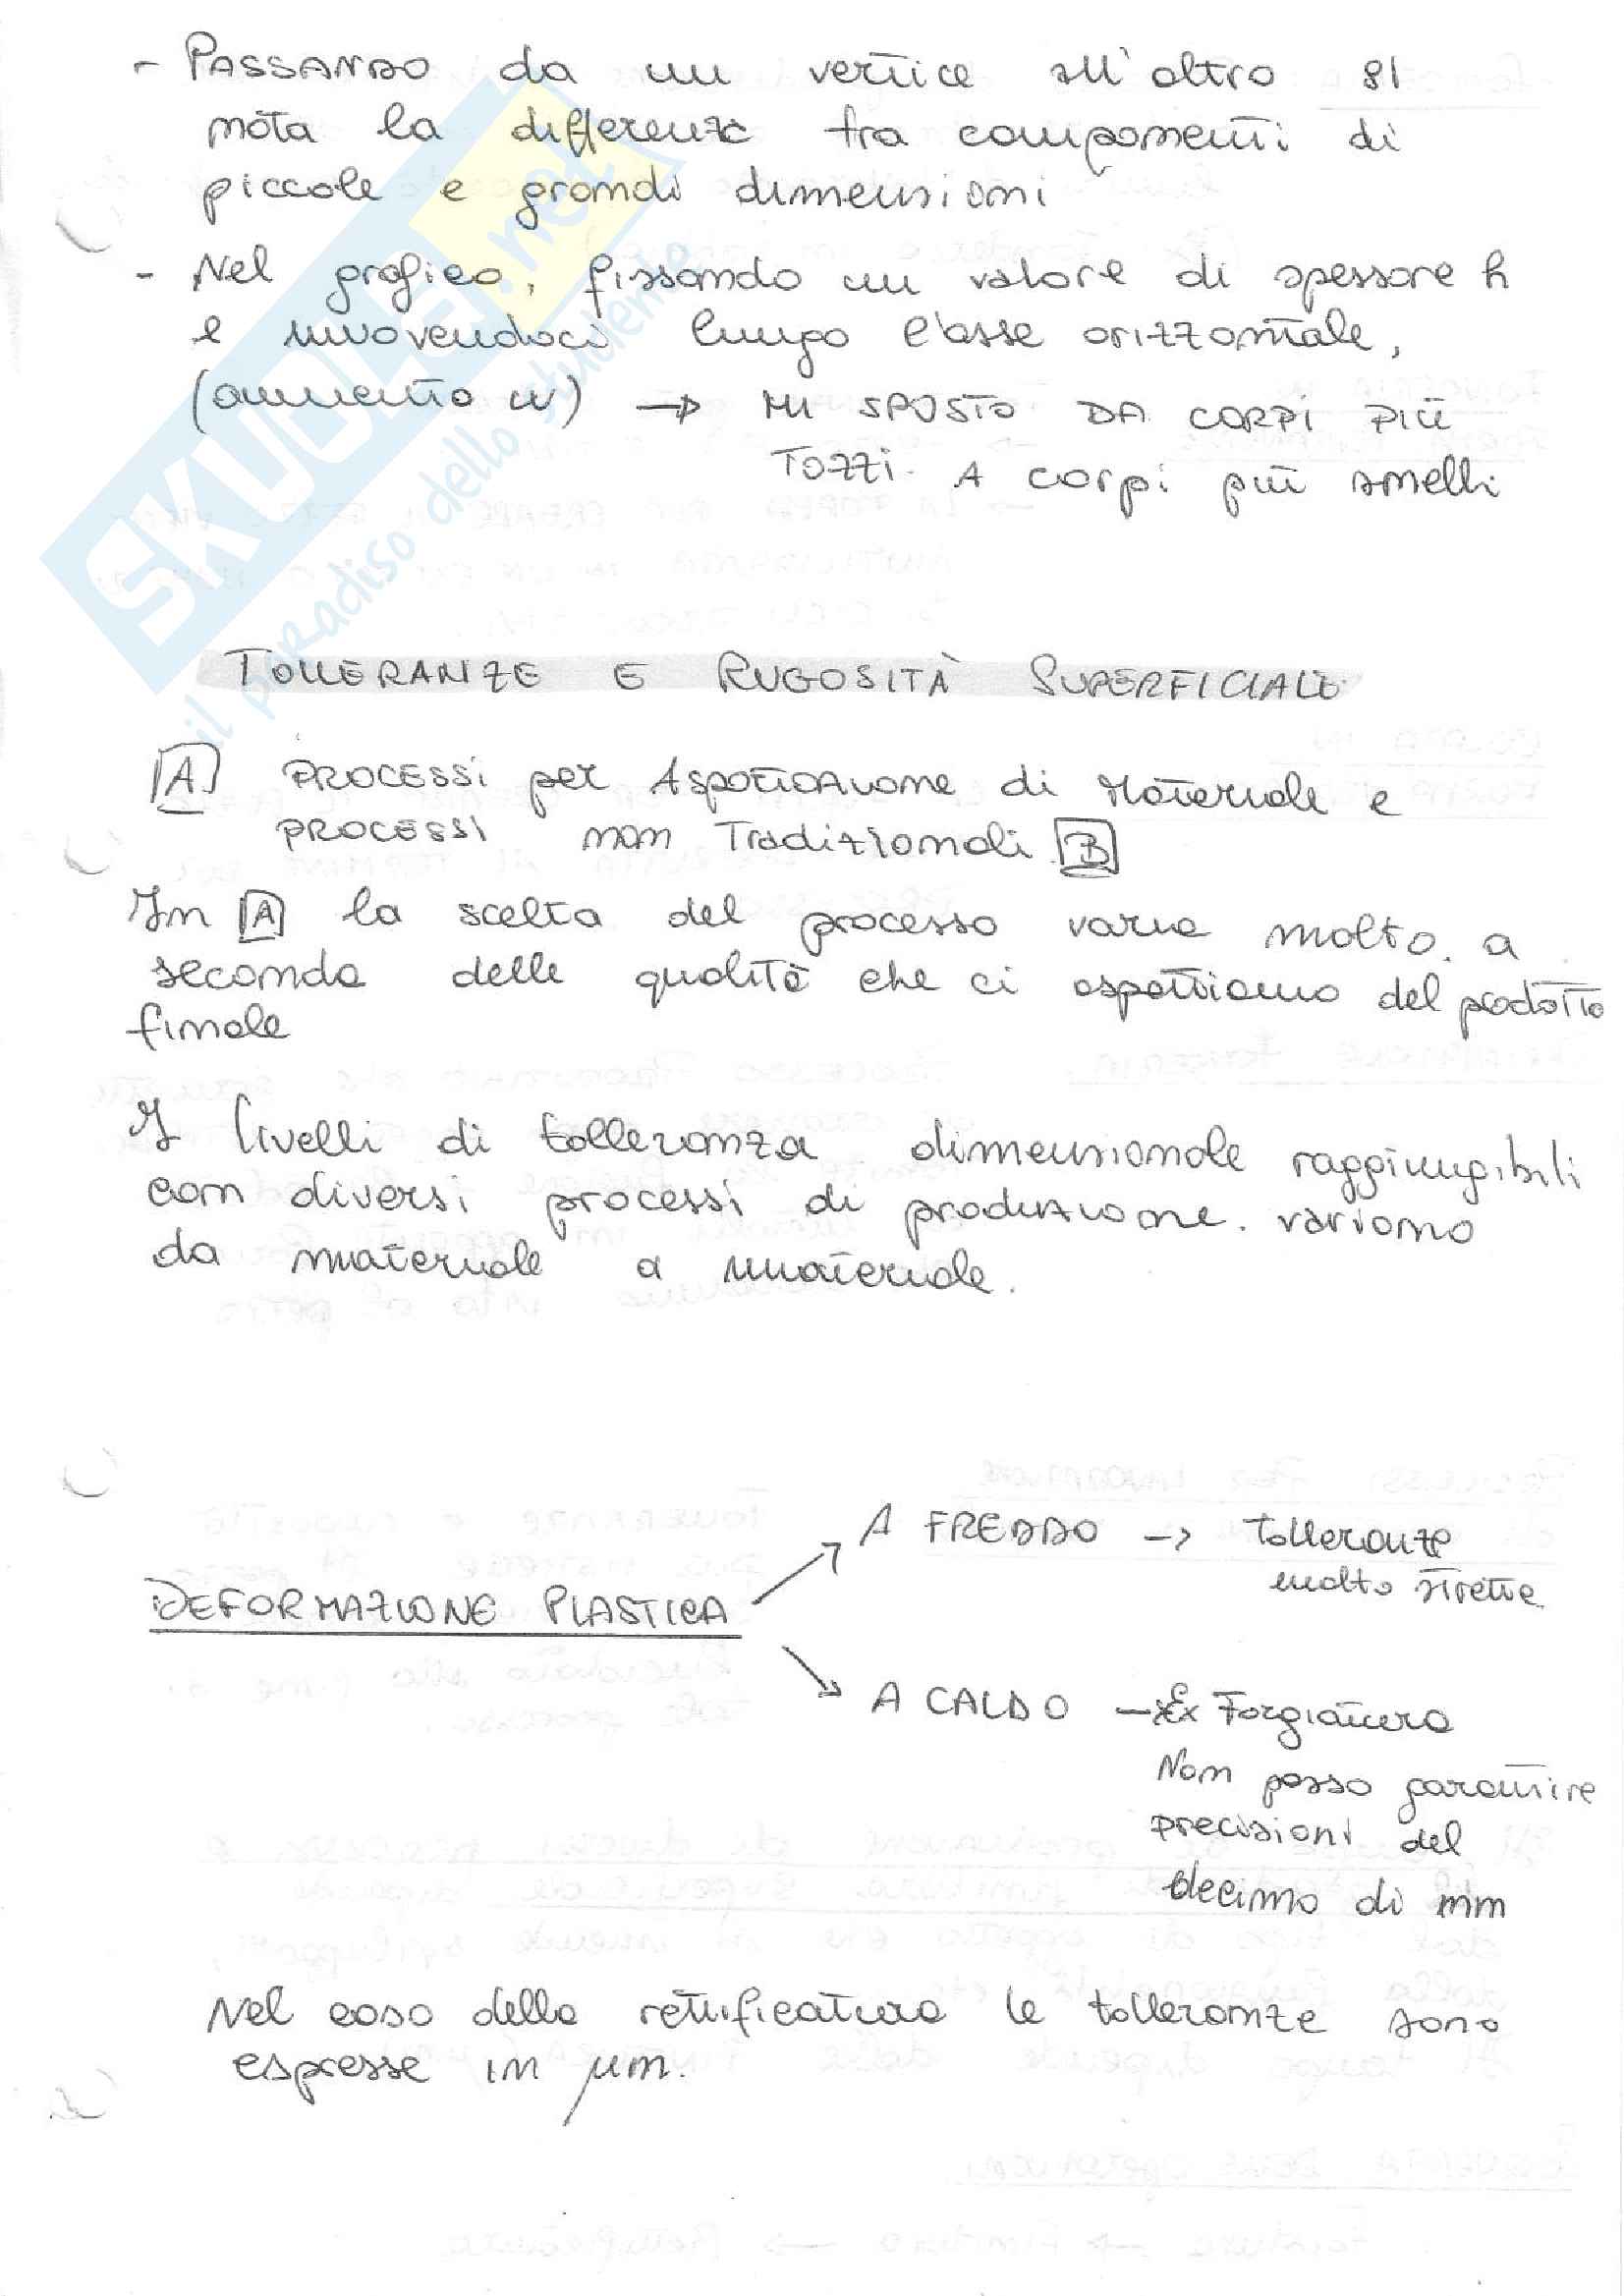 - PASSANDO da un vertice all'altro si
nota la differenza tra componenti di
piccole e grandi dimensioni
- Nel grafico, fissando un valore di spessore h
e muovendoci lungo l'asse orizzontale,
(aumento w) → MI SPOSTO DA CORPI PIÙ
TOZZI A corpi più snelli
SKUOLA.net
il paradiso dello studente
TOLLERANZE E RUGOSITÀ SUPERFICIALE
[A] PROCESSI per Asportazione di Materiale e
PROCESSI non Tradizionali [B]
In [A] la scelta del processo varia molto a
seconda delle qualità che ci aspettiamo del prodotto
finale
I livelli di tolleranza dimensionale raggiungibili
con diversi processi di produzione variano
da materiale a materiale.
A FREDDO → tolleranze
molto strette
DEFORMAZIONE PLASTICA
A CALDO → Ex Forgiatura
Non posso garantire
precisioni del
decimo di mm
Nel caso della rettificatura le tolleranze sono
espresse in μm.